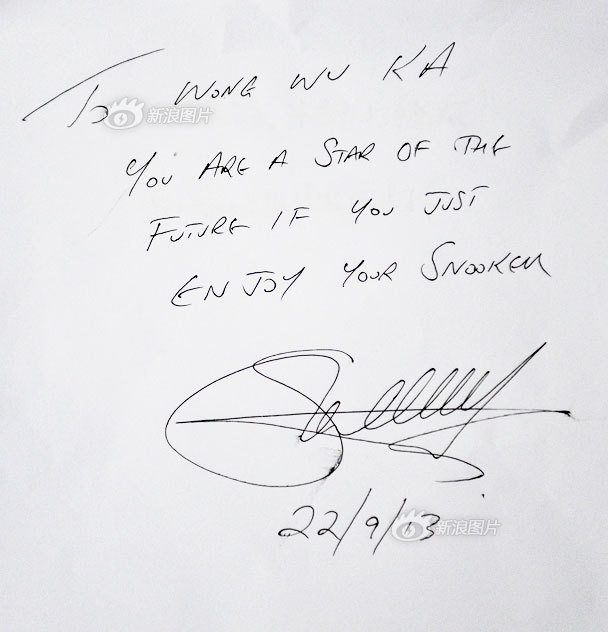 To WONG WU KA
新浪图片
YOU ARE A STAR OF THE
FUTURE IF YOU JUST
ENJOY YOUR SNOOKER
22/9/13
新浪图片